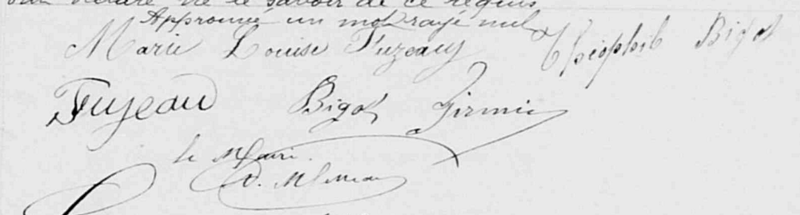 de ce requis
Approuvé un mot rayé nul
Marie Louise Fuzeau Théophile Bigot
Fuzeau Bigot Firmin
le Maire